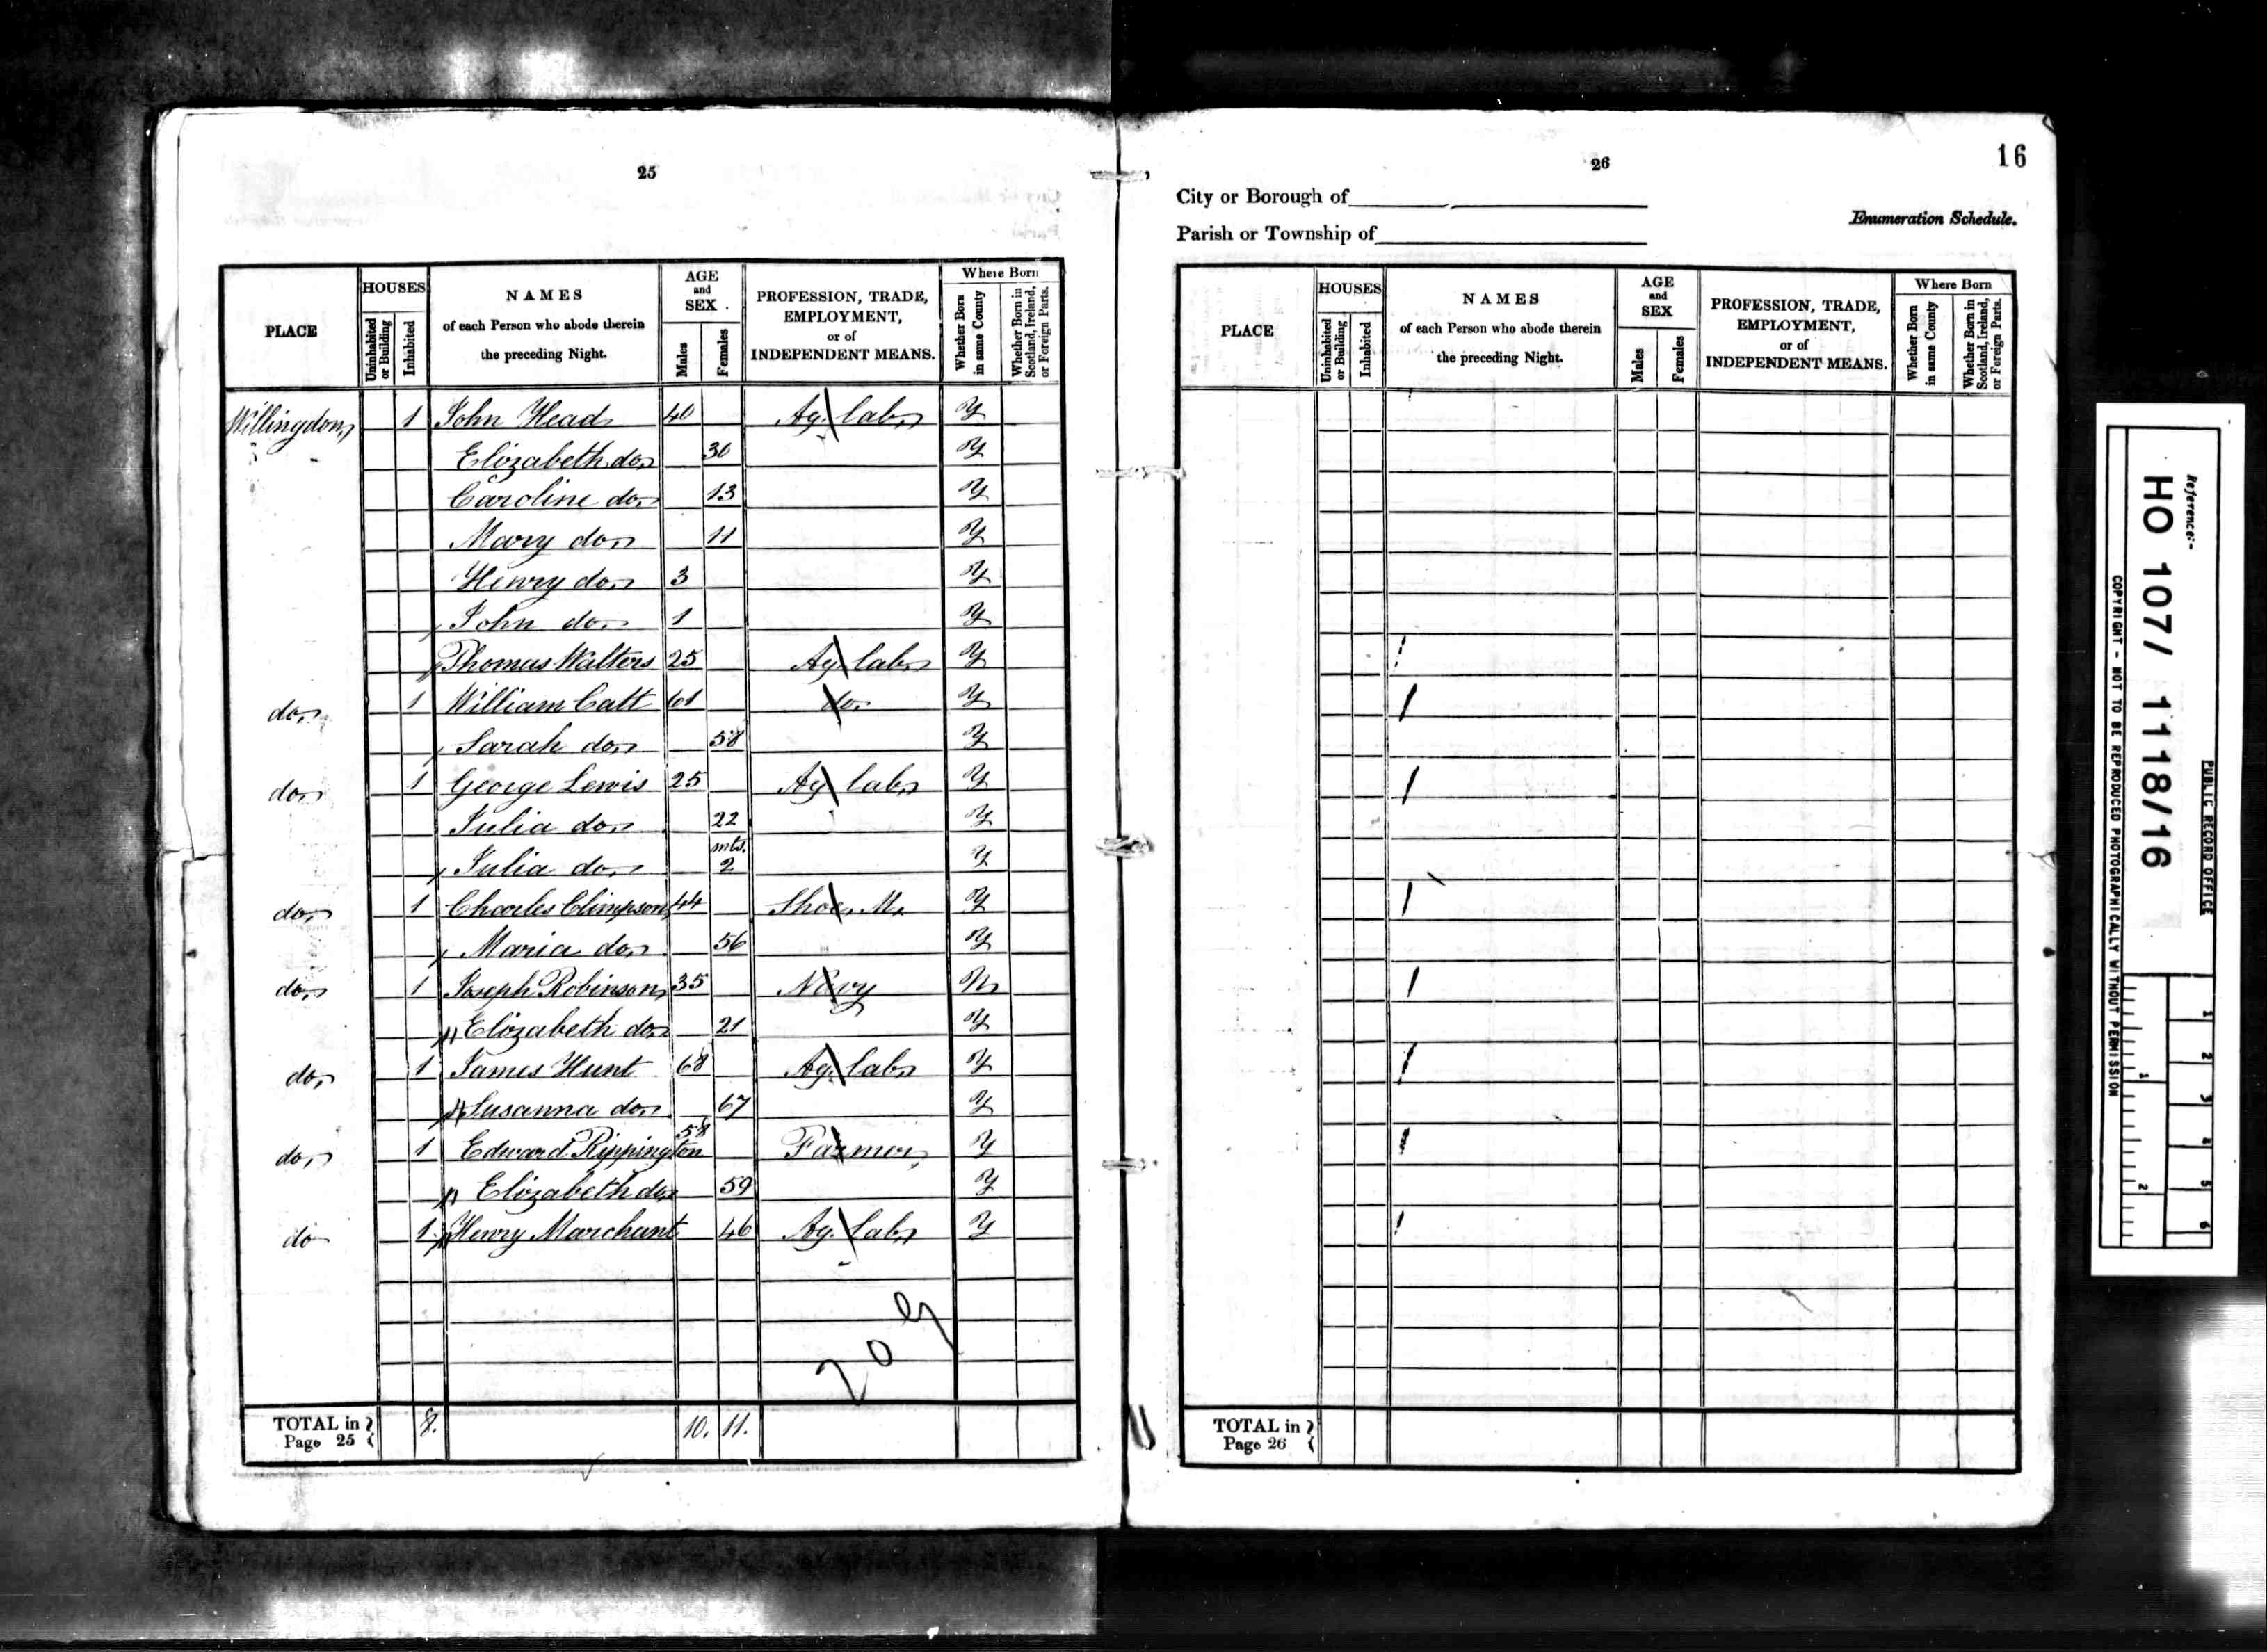 25
PLACE
HOUSES
Uninhabited or Building
Inhabited
NAMES
of each Person who abode therein
the preceding Night.
AGE
and
SEX.
Males
Females
PROFESSION, TRADE,
EMPLOYMENT,
or of
INDEPENDENT MEANS.
Where Born
Whether Born in same County
Whether Born in Scotland, Ireland, or Foreign Parts.
Willingdon 1 John Head 40 Ag. lab. Y
Elizabeth do. 30 Y
Caroline do. 13 Y
Mary do. 11 Y
Henry do. 3 Y
John do. 1 Y
Thomas Walters 25 Ag. lab. Y
do. 1 William Catt 61 do. Y
Sarah do. 58 Y
do. 1 George Lewis 25 Ag. lab. Y
Julia do. 22 Y
Julia do. mts. 2 Y
do. 1 Charles Climpson 44 Shoe. M. Y
Maria do. 56 Y
do. 1 Joseph Robinson 35 Navy N
Elizabeth do. 21 Y
do. 1 James Hunt 68 Ag. lab. Y
Susanna do. 67 Y
do. 1 Edward Rippington 58 Farmer Y
Elizabeth do. 59 Y
do 1 Henry Marchant 46 Ag. lab. Y
TOTAL in Page 25 8. 10. 11.
26
16
City or Borough of
Parish or Township of
Enumeration Schedule.
PLACE
HOUSES
Uninhabited or Building
Inhabited
NAMES
of each Person who abode therein
the preceding Night.
AGE
and
SEX
Males
Females
PROFESSION, TRADE,
EMPLOYMENT,
or of
INDEPENDENT MEANS.
Where Born
Whether Born in same County
Whether Born in Scotland, Ireland, or Foreign Parts.
TOTAL in
Page 26
Reference:-
HO 107/ 1118/16
PUBLIC RECORD OFFICE
COPYRIGHT - NOT TO BE REPRODUCED PHOTOGRAPHICALLY WITHOUT PERMISSION
1 2 3 4 5 6
1 2